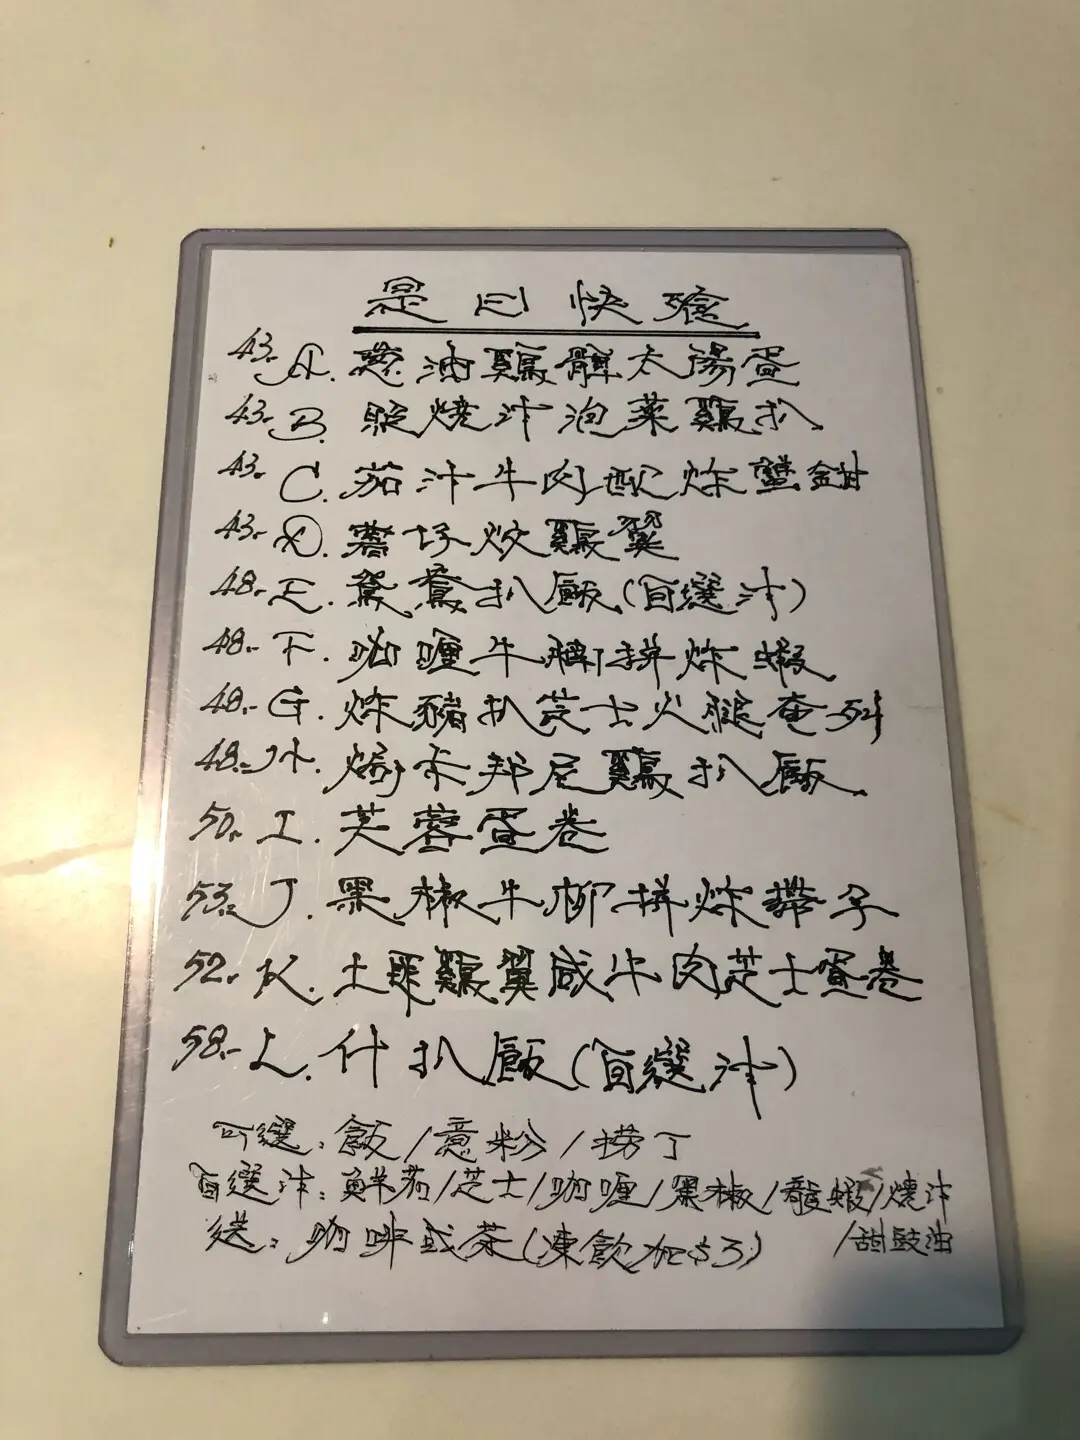 是日快餐
43- A. 蔥油雞髀太陽蛋
43- B. 照燒汁泡菜雞扒
43- C. 茄汁牛肉配炸蟹鉗
43- D. 薯仔炆雞翼
48- E. 鴛鴦扒飯(自選汁)
48- F. 咖喱牛腩拼炸蝦
48- G. 炸豬扒芝士火腿奄列
48- H. 焗卡邦尼雞扒飯
50- I. 芙蓉蛋卷
53- J. 黑椒牛柳拼炸帶子
52- K. 土匪雞翼咸牛肉芝士蛋卷
58- L. 什扒飯(自選汁)
可選:飯/意粉/撈丁
自選汁:鮮茄/芝士/咖喱/黑椒/龍蝦/燒汁
/甜豉油
送:咖啡或茶(凍飲加$3)